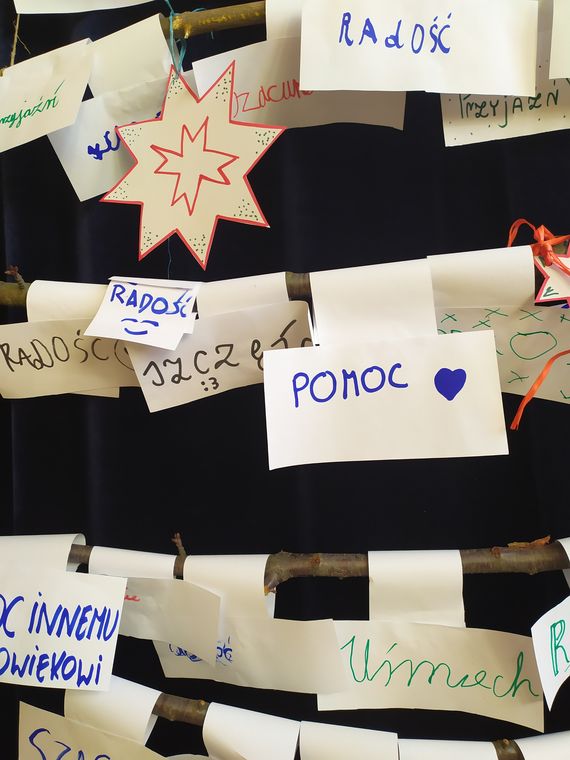 RAdOŚĆ
rzyjaźń
SZACUN
PrzYJAŹN
RADOŚĆ
RADOŚĆ
SZCZĘŚ
:3
POMOC
OC iNNEMU
OWiEKOWi
Uśmiech
R
SZA